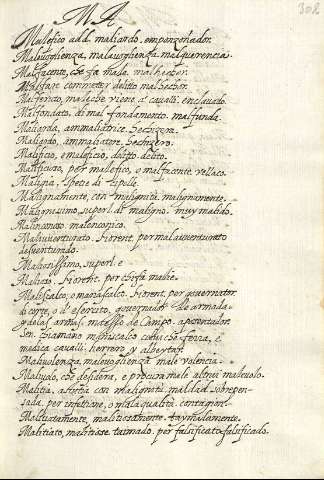 MA
302
Malefico add. maliardo. emponzeñador.
Malavoglienza, malauoglienza. malquerencia.
Malfacente, che fa male. malhechor.
Malfare commeter delitto malhechor.
Malferuto, male che viene a cavalli. enclavado.
Malfondato, di mal fondamento. malfunda.
Maliarda, ammaliatrice. hechizera.
Maliardo, ammaliatore. hechizero.
Malificio, e maleficio, delitto. delito.
Malificioso, per malefico, o malfacente, vellaco.
Maligia, spetie di cipolle.
Malignamente, con malignità. malignamente.
Malignissimo, superl. di maligno. muy malido.
Malinconoso. malenconico.
Malavventurato. Fiorent. per malaventurato
desventurado.
Malignissimo, superl. e
Malioso. Fiorent. per chi fa malie.
Maliscalco, o maniscalco. Fiorent. per governator
di corte, o il esercito, governador de armada
maestro de Campo. aposentador.
Sen chiamano maniscalco colui che ferra, e
medica cavalli. herrero y albeytar.
Malivolenza, malevoglienza male volencia.
Malivolo, che desidera, e procura male altrui malevolo.
Malitia, astutia con malignità maldad. sobrepen-
sada. per infettione, o mala qualità. contagion.
Malitiatamente, malitiosamente. taymadamente.
Malitiato, malitioso taimado. per falsificato falsificado.